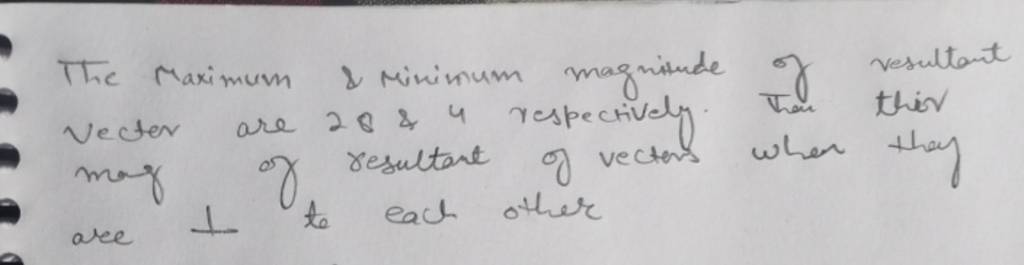 The Maximum & Minimum magnitude of resultant
vector are 28 & 4 respectively. Then their
mag of resultant of vectors when they
are ⊥ to each other